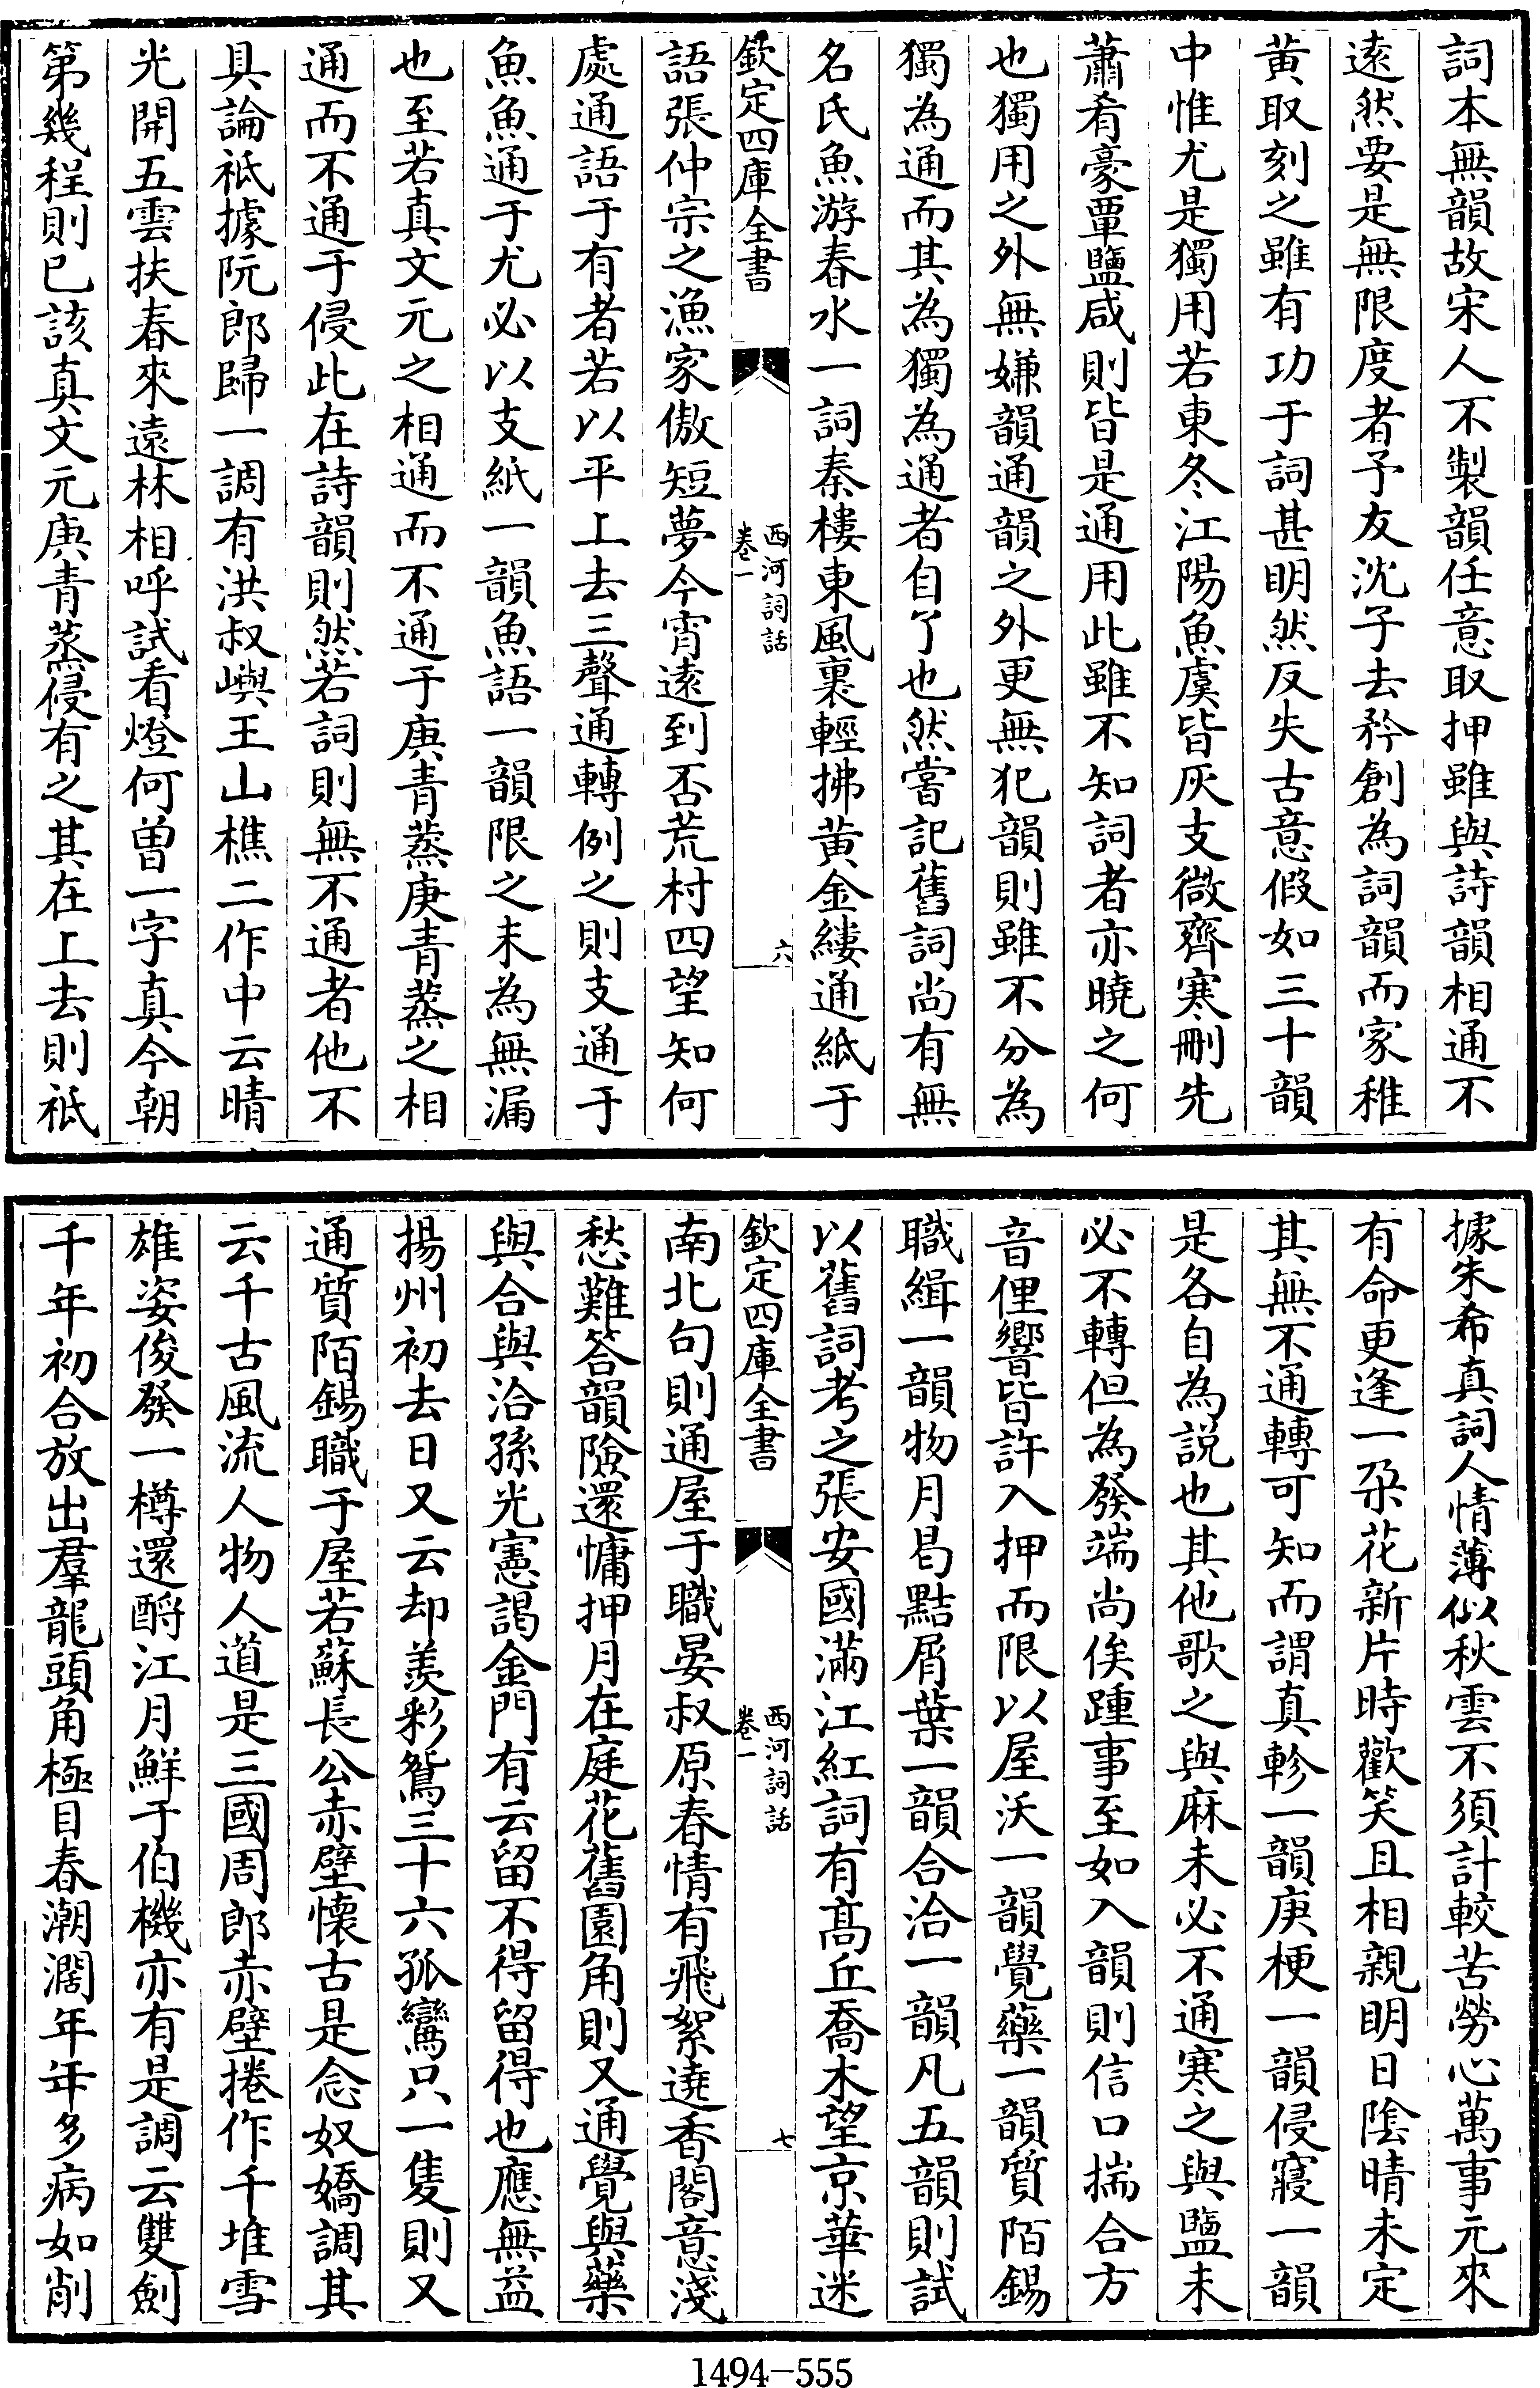 詞本無韻故宋人不製韻任意取押雖與詩韻相通不
遠然要是無限度者予友沈子去矜創為詞韻而家稚
黄取刻之雖有功于詞甚明然反失古意假如三十韻
中惟尤是獨用若東冬江陽魚虞皆灰支微齊寒刪先
蕭肴豪覃鹽咸則皆是通用此雖不知詞者亦曉之何
也獨用之外無嫌韻通韻之外更無犯韻則雖不分為
獨為通而其為獨為通者自了也然嘗記舊詞尚有無
名氏魚游春水一詞秦樓東風裏輕拂黄金縷通紙于
欽定四庫全書
西河詞話
卷一
六
語張仲宗之漁家傲短夢今宵遠到否荒村四望知何
處通語于有者若以平上去三聲通轉例之則支通于
魚魚通于尤必以支紙一韻魚語一韻限之未為無漏
也至若真文元之相通而不通于庚青蒸庚青蒸之相
通而不通于侵此在詩韻則然若詞則無不通者他不
具論祇據阮郎歸一調有洪叔嶼王山樵二作中云晴
光開五雲扶春來遠林相呼試看燈何曽一字真今朝
第幾程則已該真文元庚青蒸侵有之其在上去則祇
據朱希真詞人情薄似秋雲不須計較苦勞心萬事元來
有命更逢一朶花新片時歡笑且相親明日陰晴未定
其無不通轉可知而謂真軫一韻庚梗一韻侵寢一韻
是各自為説也其他歌之與麻未必不通寒之與鹽未
必不轉但為發端尚俟踵事至如入韻則信口揣合方
音俚響皆許入押而限以屋沃一韻覺藥一韻質陌錫
職緝一韻物月曷黠屑葉一韻合洽一韻凡五韻則試
以舊詞考之張安國滿江紅詞有髙丘喬木望京華迷
欽定四庫全書
西河詞話
卷一
七
南北句則通屋于職晏叔原春情有飛絮遶香閣意淺
愁難答韻險還慵押月在庭花舊園角則又通覺與藥
與合與洽孫光憲謁金門有云留不得留得也應無益
揚州初去日又云却羨彩鴛三十六孤鸞只一隻則又
通質陌錫職于屋若蘇長公赤壁懷古是念奴嬌調其
云千古風流人物人道是三國周郎赤壁捲作千堆雪
雄姿俊發一樽還酹江月鮮于伯機亦有是調云雙劍
千年初合放出羣龍頭角極目春潮濶年年多病如削
1494-555